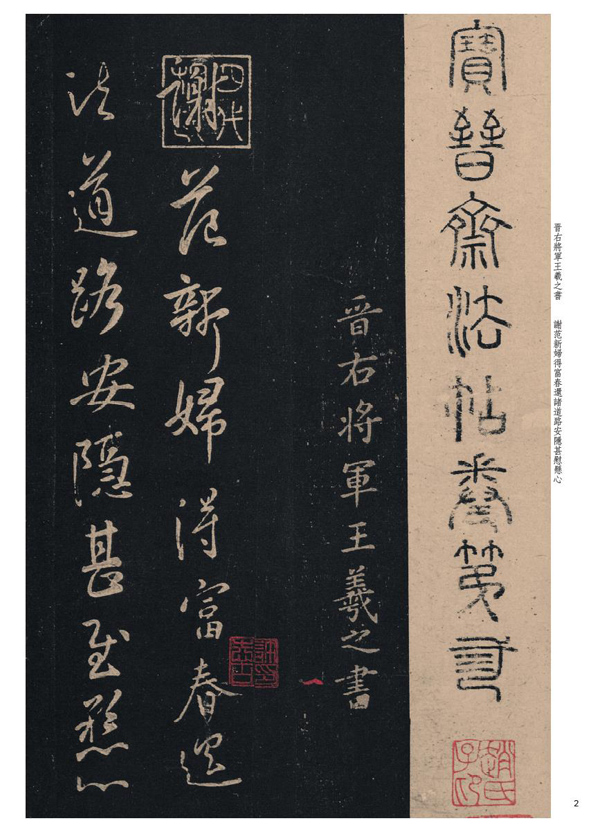 晉右將軍王羲之書　謝范新婦得富春還諸道路安隱甚慰懸心
寶晉齋法帖卷第
趙氏子印
晉右將軍王羲之書
四代
謝范新婦得富春還
諸道路安隱甚慰懸心
2